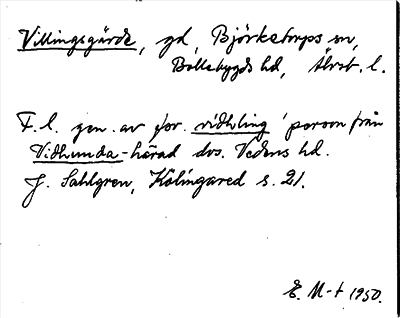 Villingsgärde, gd, Björketorps sn,
Bollebygds hd, Älvsb. l.
F. l. gen. av fsv. vidhling 'person från
Vidhunda-härad dvs. Vedens hd.
J. Sahlgren, Kölingared s. 21.
E. M-t 1950.